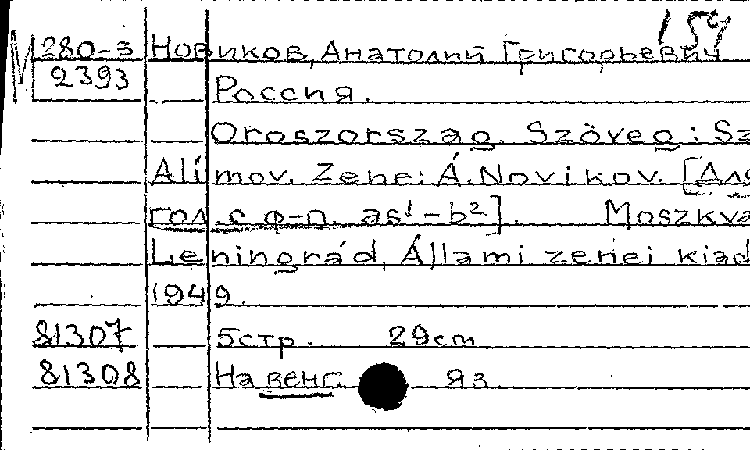 154
М 280-3 Новиков, Анатолий Григорьевич
2393 Россия.
Oroszország. Szöveg: Sz
Alímov. Zene: Á. Novikov. [Для
гол. с ф-п. as¹-b²]. Moszkva
Leningrád, Állami zenei kiad
1949.
81307 5стр. 29cm
81308 На венг. яз.